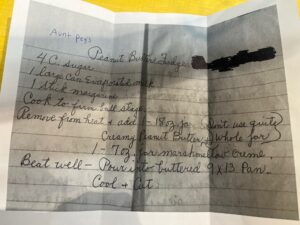 Aunt Peg's
Peanut Butter Fudge
4 C. sugar
1 large can Evaporated milk
1 Stick margarine
Cook to firm ball stage.
Remove from heat & add 1-18 oz. jar (Don't use quite
Creamy Peanut Butter, Whole jar)
1-7 oz. jar marshmallow Creme.
Beat well - Pour into buttered 9 x 13 Pan.
Cool + Cut